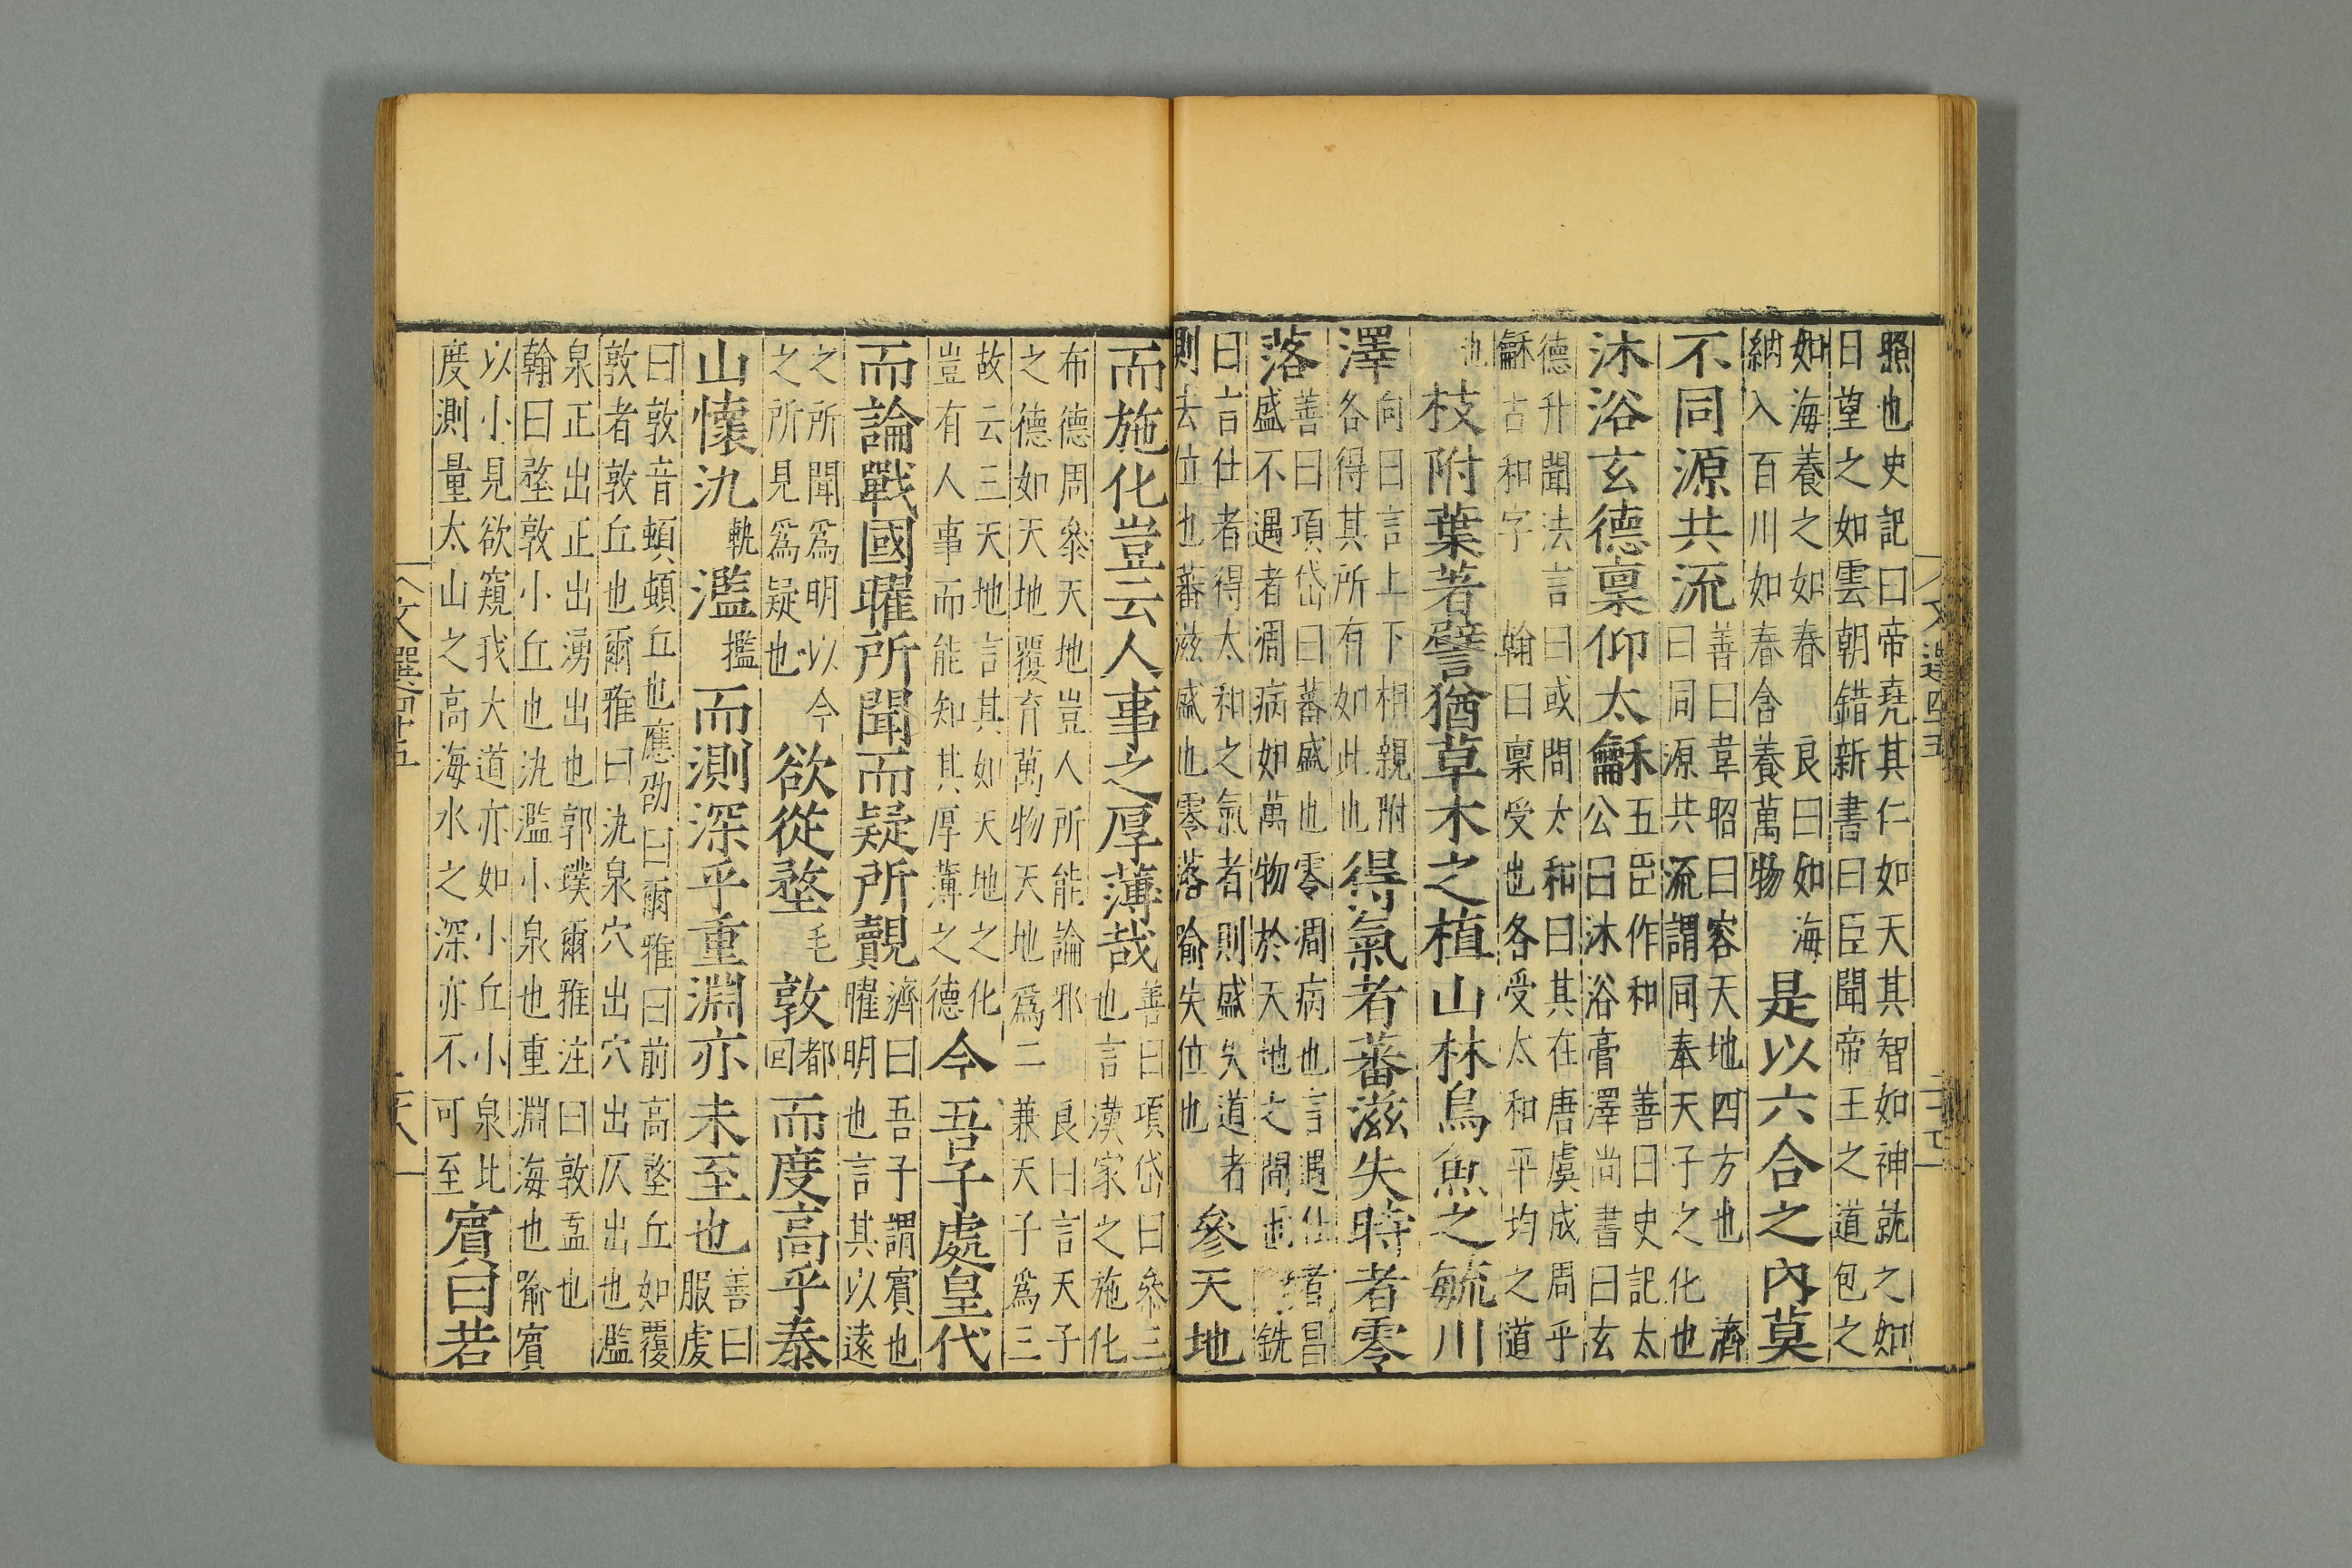 照也史記曰帝堯其仁如天其智如神就之如
日望之如雲朝錯新書曰臣聞帝王之道包之
如海養之如春 良曰如海
納入百川如春含養萬物
是以六合之內莫
不同源共流
善曰韋昭曰容天地四方也 濟
曰同源共流謂同奉天子之化也
沐浴玄德稟仰太龢
五臣作和 善曰史記太
公曰沐浴膏澤尚書曰玄
德升聞法言曰或問太和曰其在唐虞成周乎
龢古和字 翰曰稟受也各受太和平均之道
也
枝附葉著譬猶草木之植山林鳥魚之毓川
澤
向曰言上下相親附
各得其所有如此也
得氣者蕃滋失時者零
落
善曰項岱曰蕃盛也零凋病也言遇仕者昌
盛不遇者凋病如萬物於天地之間也 銑
曰言仕者得太和之氣者則盛失道者
則去位也蕃滋盛也零落喻失位也
參天地
而施化豈云人事之厚薄哉
善曰項岱曰參三
也言漢家之施化
布德周參天地豈人所能論邪 良曰言天子
之德如天地覆育萬物天地爲二兼天子爲三
故云三天地言其如天地之化
豈有人事而能知其厚薄之德
今吾子處皇代
而論戰國曜所聞而疑所覿
濟曰吾子謂賓也
曜明也言其以遠
之所聞爲明以今
之所見爲疑也
欲從堥
毛
敦
都
回
而度高乎泰
山懷氿
軌
濫
檻
而測深乎重淵亦未至也
善曰
服虔
曰敦音頓頓丘也應劭曰爾雅曰前高堥丘如覆
敦者敦丘也爾雅曰氿泉穴出穴出仄出也濫
泉正出正出湧出也郭璞爾雅注曰敦盂也
翰曰堥敦小丘也氿濫小泉也重淵海也喻賓
以小見欲窺我大道亦如小丘小泉比
度測量太山之高海水之深亦不可至
賓曰若